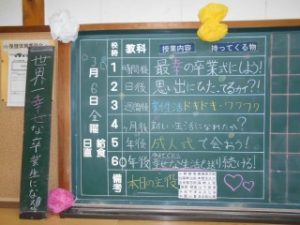 世界一幸せな卒業生になろ
校時 教科 授業内容 持ってくる物
3月6日金曜
給食
日直
1 時間後 最幸の卒業式にしよう!
2 日後 思い出にひたってるかな?!
3 週間後 新生活ドキドキ・ワクワク
4 ヵ月後 新しい生活になれたか?
5 年後 成人式で会おう!
60年後 幸せな生活を送り続ける!
備考 本日の主役